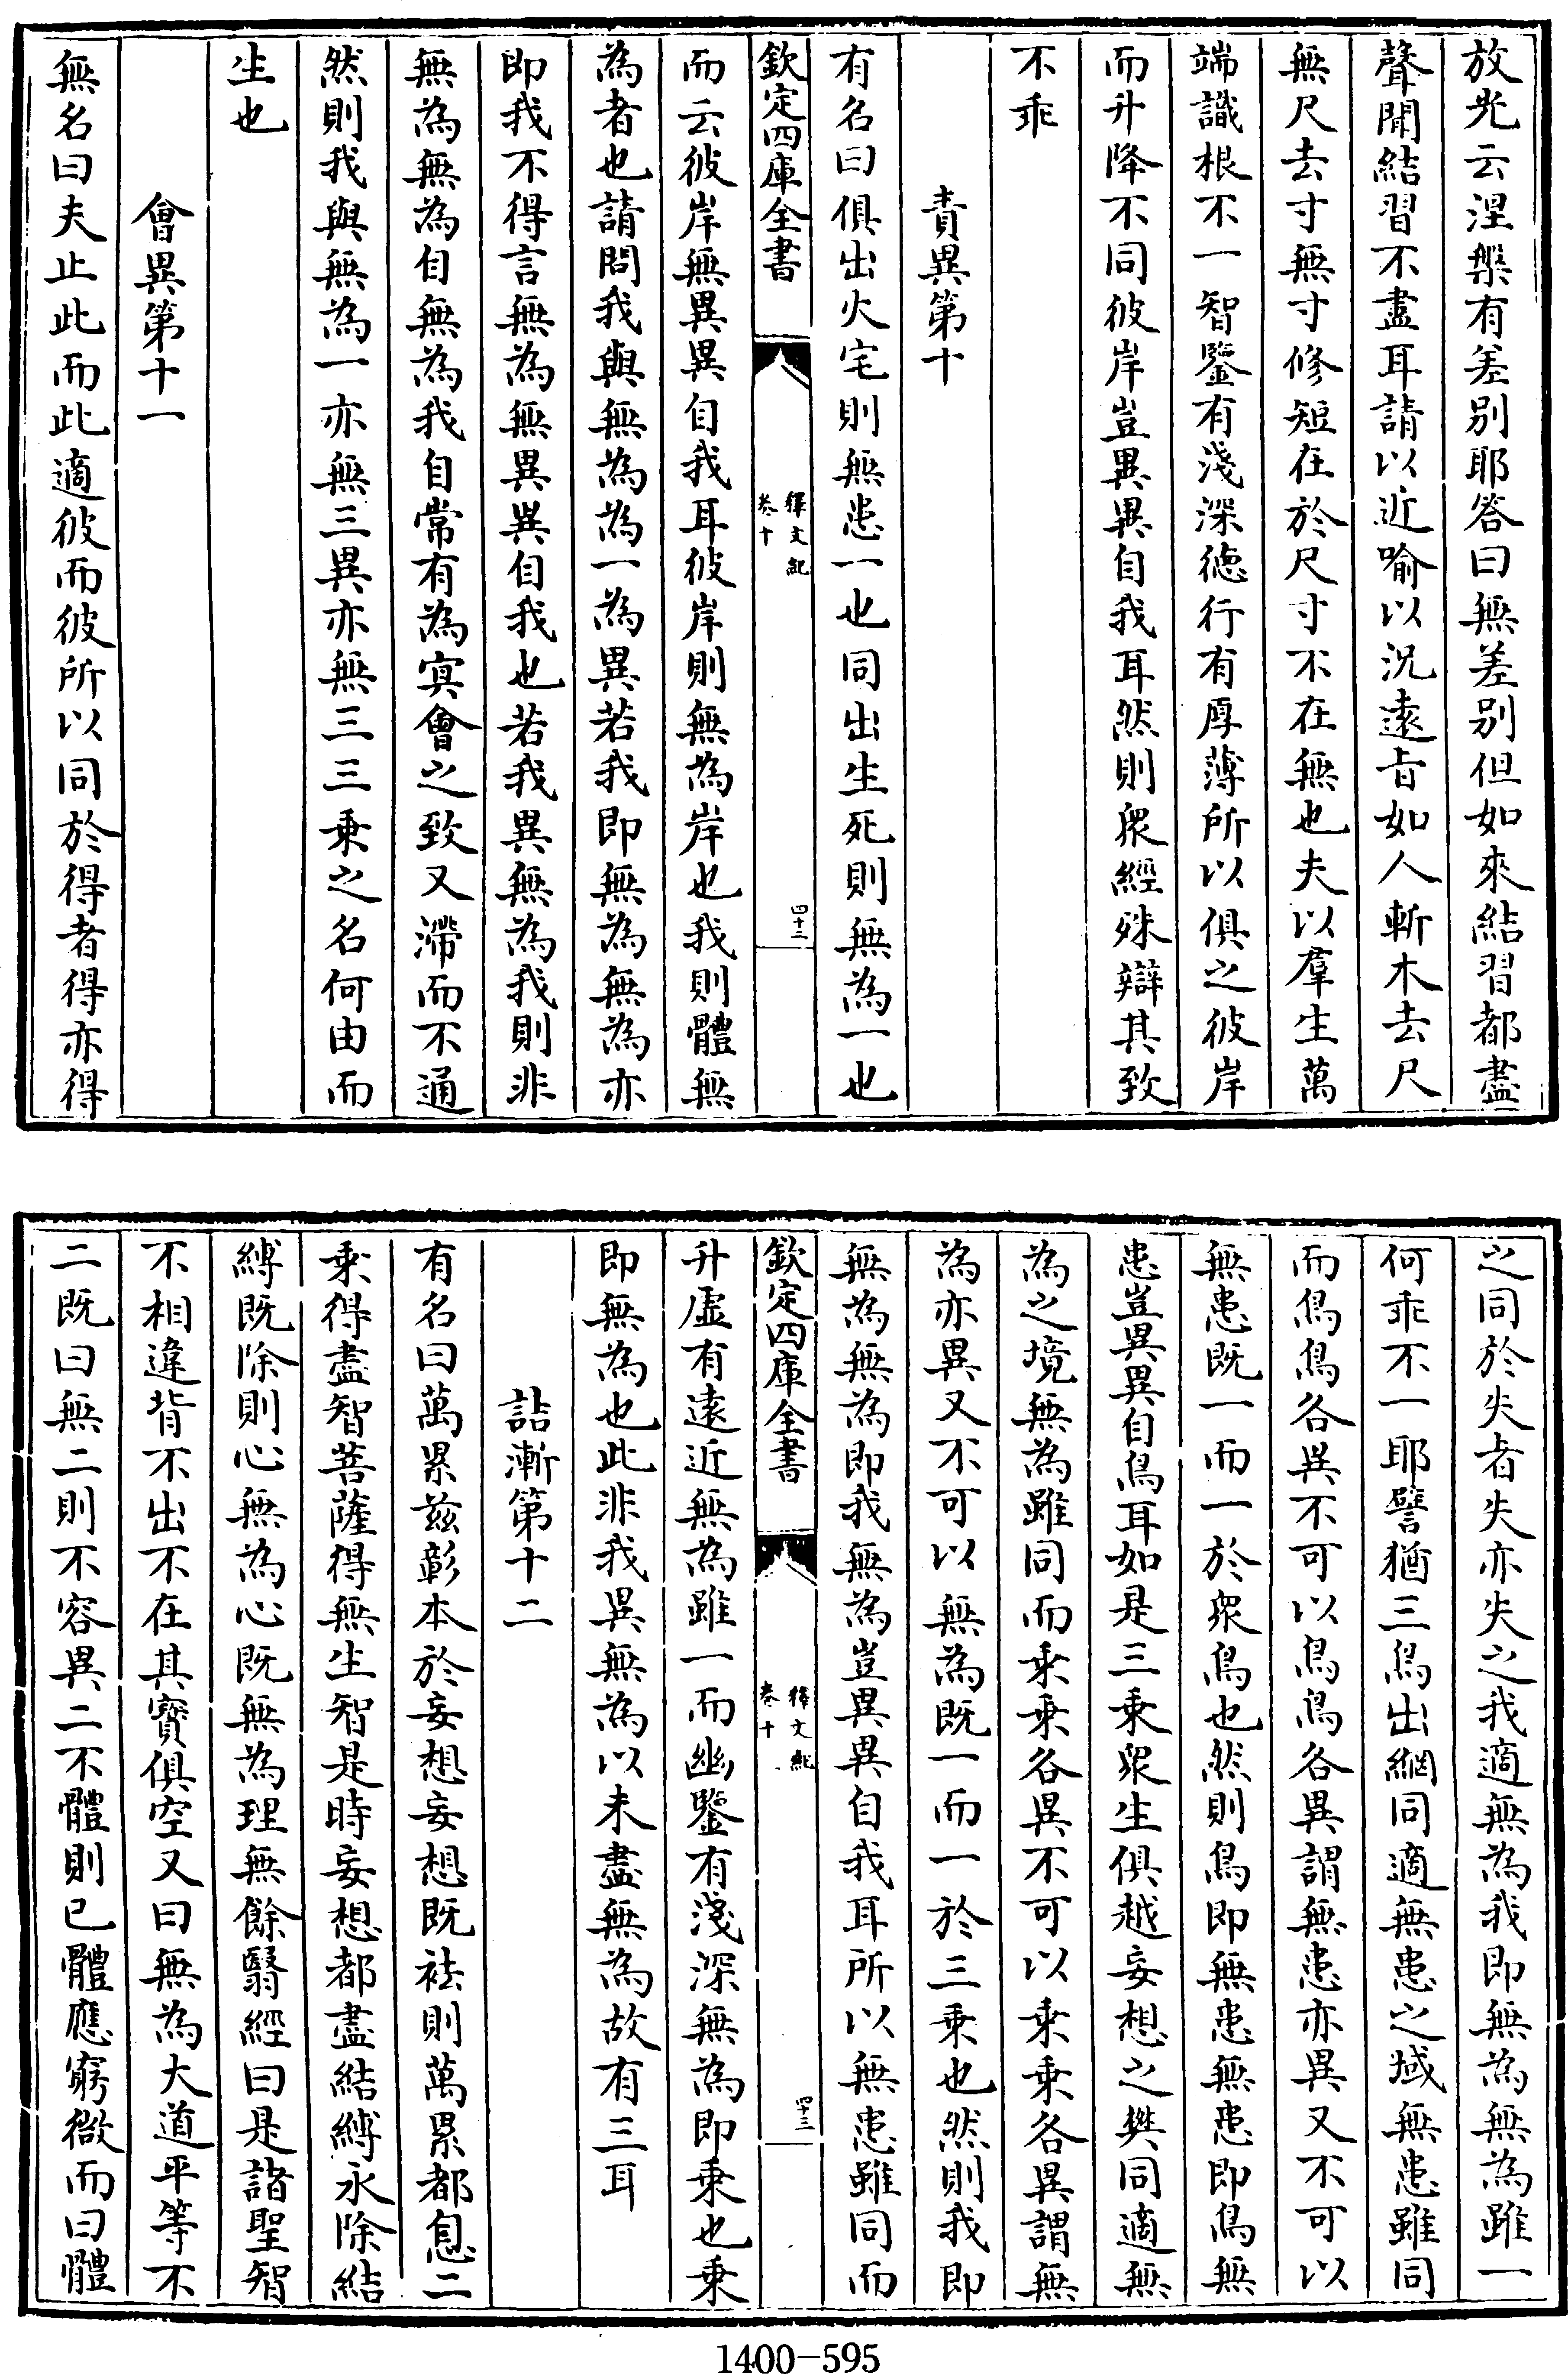 放光云涅槃有差别耶答曰無差别但如來結習都盡
聲聞結習不盡耳請以近喻以況遠旨如人斬木去尺
無尺去寸無寸修短在於尺寸不在無也夫以羣生萬
端識根不一智鑒有淺深德行有厚薄所以俱之彼岸
而升降不同彼岸豈異異自我耳然則衆經殊辯其致
不乖
責異第十
有名曰俱出火宅則無患一也同出生死則無為一也
欽定四庫全書
釋文紀
卷十
四十二
而云彼岸無異異自我耳彼岸則無為岸也我則體無
為者也請問我與無為為一為異若我即無為無為亦
即我不得言無為無異異自我也若我異無為我則非
無為無為自無為我自常有為冥會之致又滯而不通
然則我與無為一亦無三異亦無三三乘之名何由而
生也
會異第十一
無名曰夫止此而此適彼而彼所以同於得者得亦得
之同於失者失亦失之我適無為我即無為無為雖一
何乖不一耶譬猶三鳥出網同適無患之域無患雖同
而鳥鳥各異不可以鳥鳥各異謂無患亦異又不可以
無患既一而一於衆鳥也然則鳥即無患無患即鳥無
患豈異異自鳥耳如是三乘衆生俱越妄想之樊同適無
為之境無為雖同而乘乘各異不可以乘乘各異謂無
為亦異又不可以無為既一而一於三乘也然則我即
無為無為即我無為豈異異自我耳所以無患雖同而
欽定四庫全書
釋文紀
卷十
四十三
升虛有遠近無為雖一而幽鑒有淺深無為即乘也乘
即無為也此非我異無為以未盡無為故有三耳
詰漸第十二
有名曰萬累兹彰本於妄想妄想既袪則萬累都息二
乘得盡智菩薩得無生智是時妄想都盡結縛永除結
縛既除則心無為心既無為理無餘翳經曰是諸聖智
不相違背不出不在其寶俱空又曰無為大道平等不
二既曰無二則不容異二不體則已體應窮微而曰體
1400-595